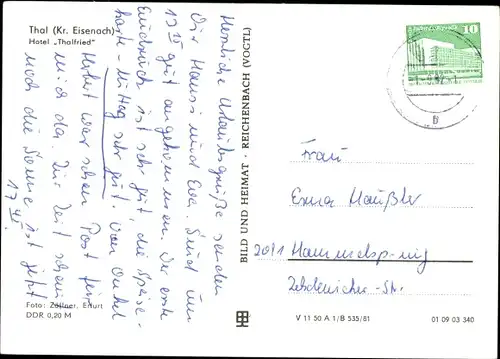 Thal (Kr. Eisenach)
Hotel „Thalfried"
Herzliche Urlaubsgrüße senden
Dir Hanni und Eva. Sind um
13 gut angekommen. Der erste
Eindruck ist sehr gut, die Speise-
karte - Mittag sehr gut. Von Onkel
Hubert war schon Post für
mich da. Zur Zeit scheint
noch die Sonne ist jetzt
17
Foto: Zöllner, Erfurt
DDR 0,20 M
BILD UND HEIMAT · REICHENBACH (VOGTL)
10
Frau
Erna Häußler
2091 Hammelspring
Zehdenicker-Str.
V 11 50 A 1/B 535/81
01 09 03 340